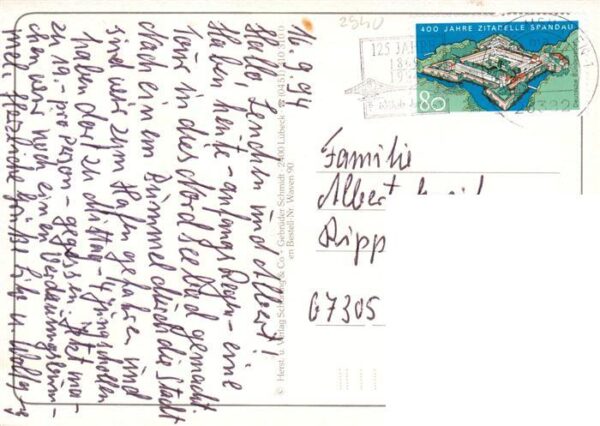 16.9.94
Hallo, Lenchen und Albert!
Haben heute - anfangs Regen - eine
Tour in dies Nordseebad gemacht
Nach einem Bummel durch die Stadt
sind wir zum Hafen gefahren und
haben dort zu Mittag - 4 Jungschollen
zu 19,- pro Person - gegessen. Jetzt ma-
chen wir noch einen Verdauungsbum-
mel. Herzliche Grüße
© Herst. u. Verlag Schöning & Co - Gebrüder Schmidt - 2400 Lübeck
en Bestell-Nr. Wauen 90
2540
400 JAHRE ZITADELLE SPANDAU
80
125 JAHRE
Familie
Albert
Ripp
67305